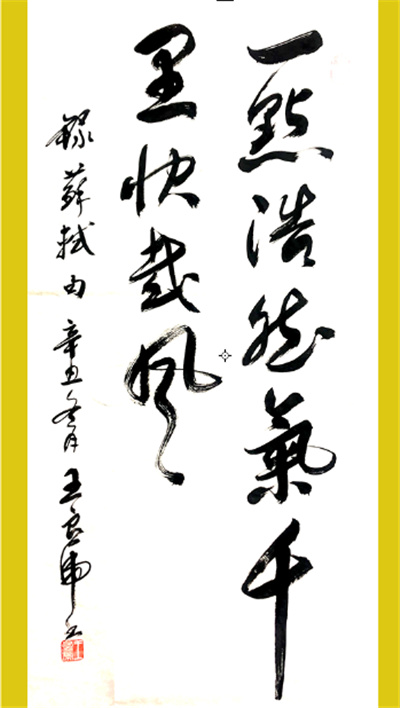 一點浩然氣千
里快哉風
錄蘇軾句 辛丑冬月 王良虎书